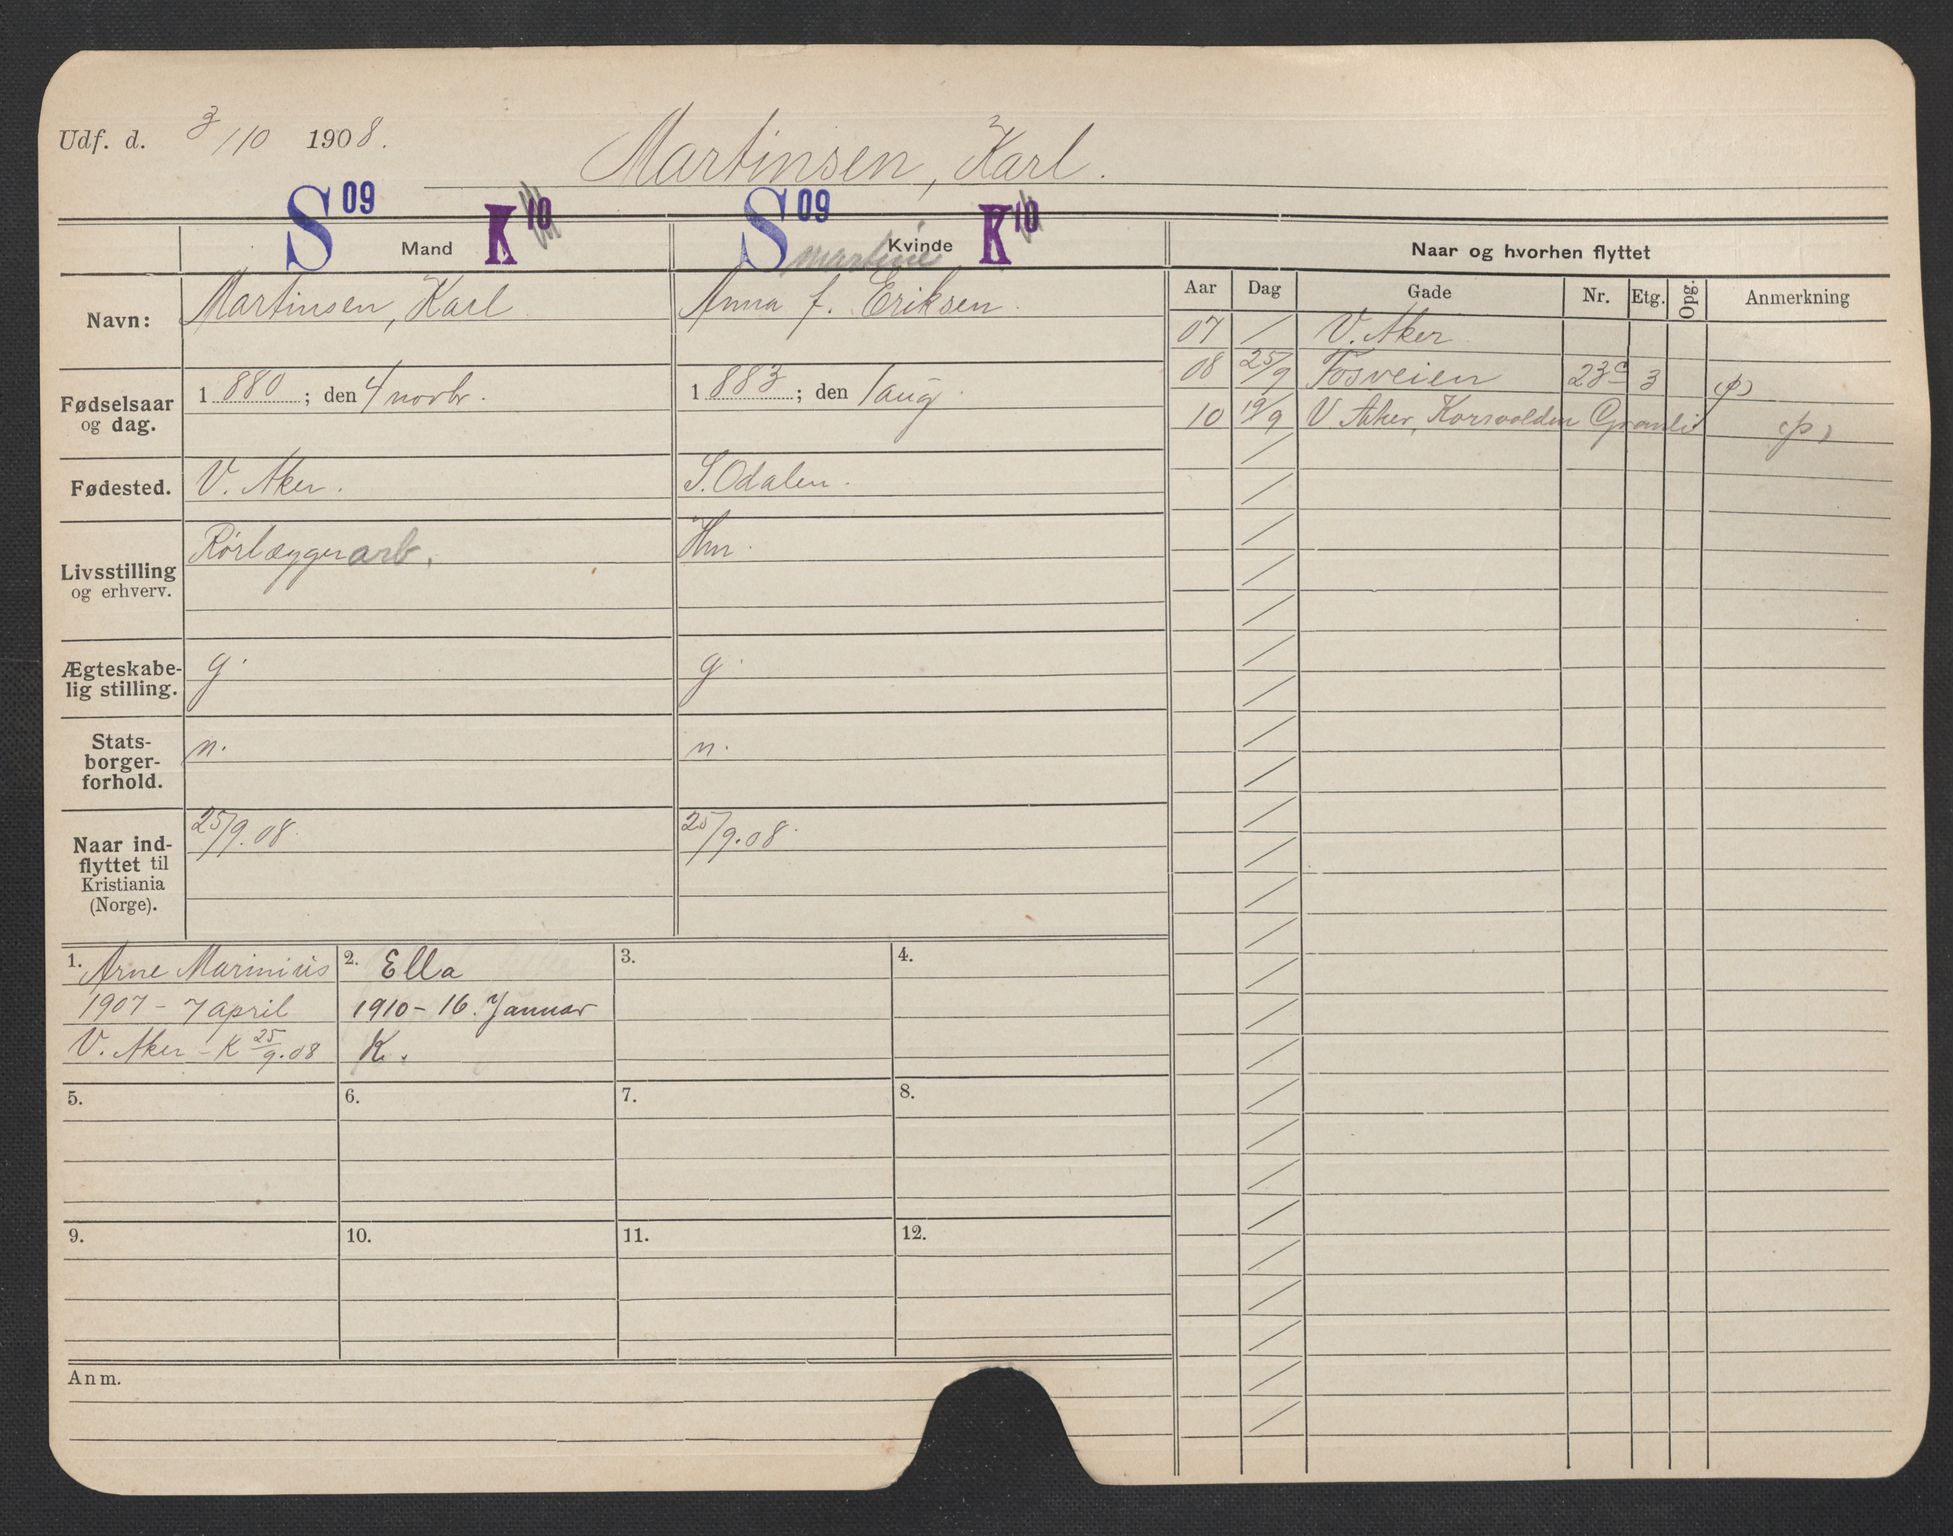 Udf. d. 3/10 1908.
Martinsen, Karl.
S 09 Mand K 10
S 09 Kvinde K 10
Naar og hvorhen flyttet
martine
Navn:
Martinsen, Karl
Anna f. Eriksen.
Fødselsaar
og dag.
1880; den 4 novbr.
1883; den 1 aug.
Fødested.
V. Aker.
S. Odalen.
Livsstilling
og erhverv.
Rørlæggerarb.
Hm.
Ægteskabe-
lig stilling.
g.
g.
Stats-
borger-
forhold.
n.
n.
Naar ind-
flyttet til
Kristiania
(Norge).
25/9.08.
25/9.08.
Aar Dag Gade Nr. Etg. Opg. Anmerkning
07 / V. Aker
08 25/9 Fosveien 23c 3 (p)
10 19/9 V. Aker, Korsvolden Granli (p)
1. Arne Marinius
1907 - 7 april
V. Aker - K 25/9.08
2. Ella
1910 - 16. Januar
K.
3.
4.
5.
6.
7.
8.
9.
10.
11.
12.
Anm.